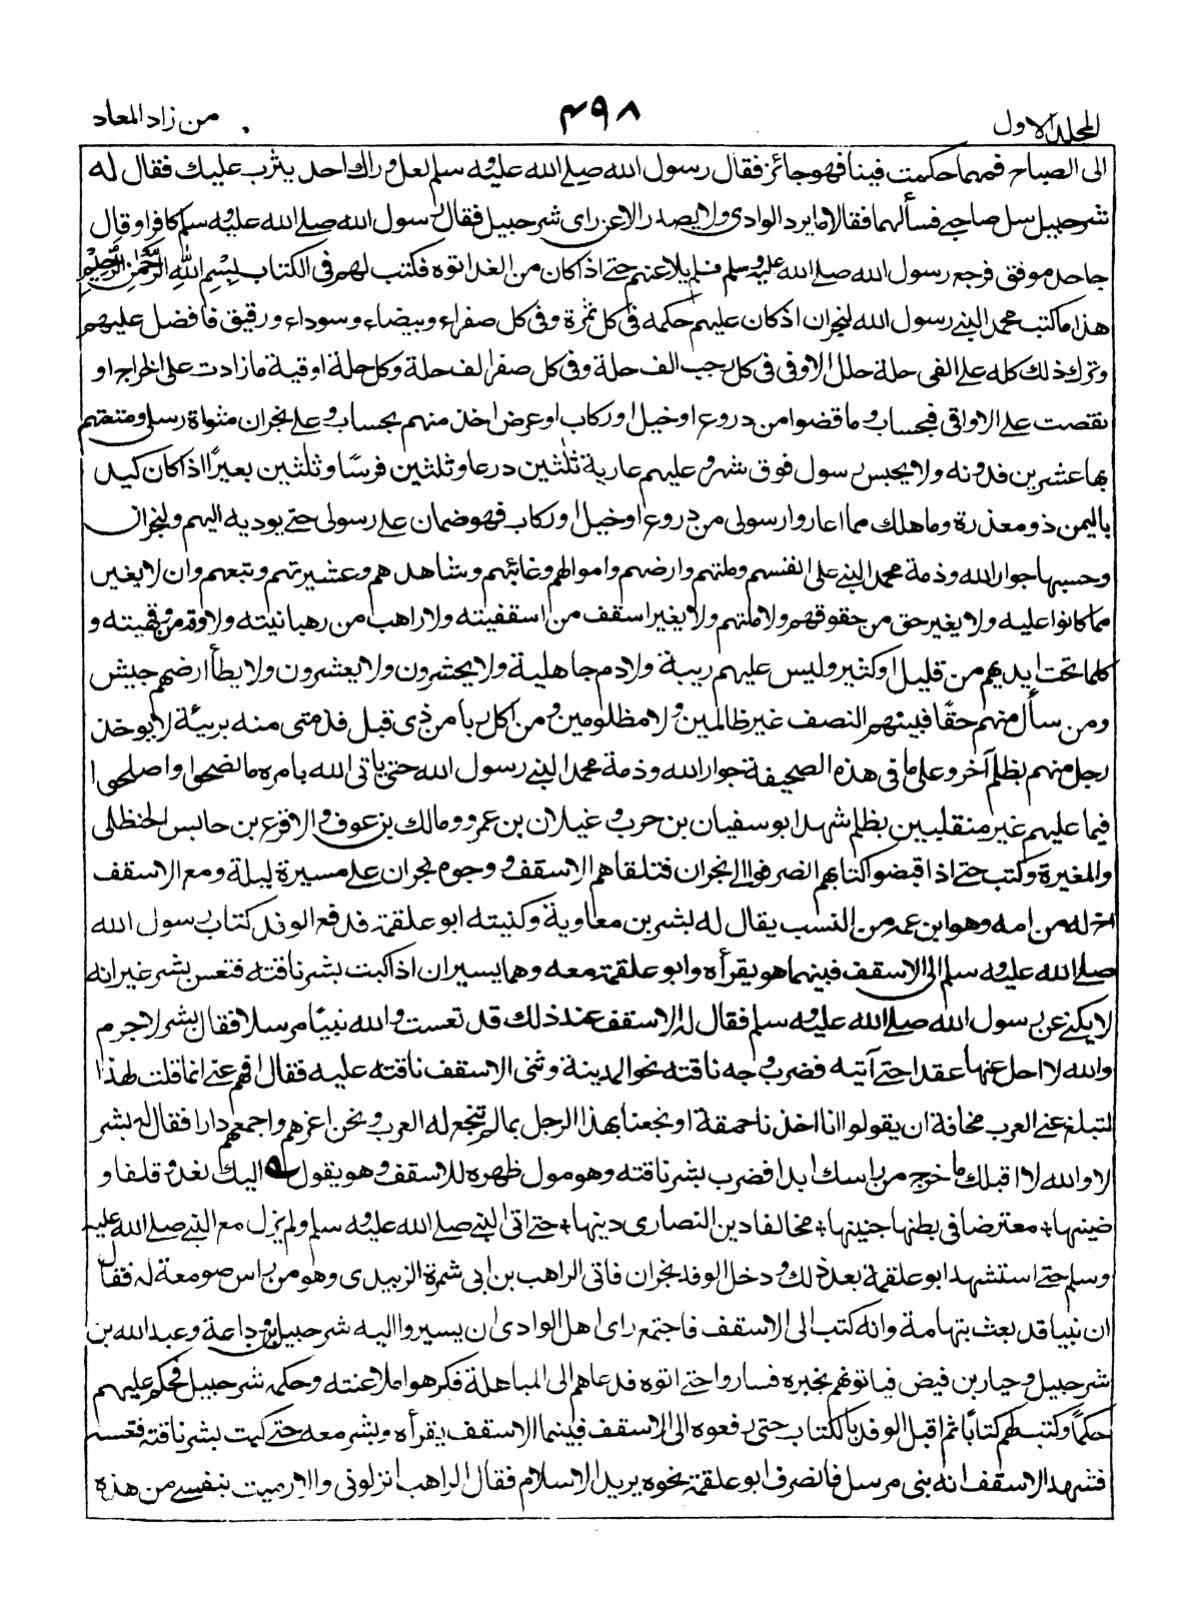 المجلد الاول
۴۹۸
من زاد المعاد
الى الصباح فمهما حكمت فينا فهو جائز فقال رسول الله صلے الله عليه وسلم لعل وراك احد يثرب عليك فقال له
شرحبيل سل صاحبے فسألهما فقالا ما يرد الوادى ولا يصدر الا عن راى شرحبيل فقال رسول الله صلے الله عليه وسلم كافر او قال
جاحد موفق فرجع رسول الله صلے الله عليه وسلم فلم يلاعنهم حتے اذا كان من الغد اتوه فكتب لهم فى الكتاب بِسْمِ اللهِ الرَّحْمٰنِ الرَّحِيْمِ
هذا ما كتب محمد النبے رسول الله لنجران اذ كان عليهم حكمه فى كل ثمرة وفى كل صفراء وبيضاء وسوداء ورقيق فافضل عليهم
وترك ذلك كله على الفى حلة حلل الاوفى فى كل رجب الف حلة وفى كل صفر الف حلة وكل حلة اوقية ما زادت على الخراج او
نقصت على الاواقى فبحساب وما قضوا من دروع او خيل او ركاب او عرض اخذ منهم بحساب وعلے نجران مثواة رسلى ومتعتهم
بها عشرين فدونه ولا يحبس رسول فوق شهر وعليهم عارية ثلٰثين درعا وثلثين فرسًا وثلثين بعيرًا اذا كان كيد
باليمن ذو معذرة وما هلك مما اعاروا رسولى من دروع او خيل او ركاب فهو ضمان علے رسولى حتے يوديه اليهم ولنجران
وحسبها جوار الله وذمة محمد النبے على انفسهم وملتهم وارضهم واموالهم وغائبهم وشاهدهم وعشيرتهم وتبعهم وان لا يغير
مما كانوا عليه ولا يغير حق من حقوقهم ولا ملتهم ولا يغير اسقف من اسقفيته ولا راهب من رهبانيته ولا وقه من وقهيته و
كلما تحت ايديهم من قليل او كثير وليس عليهم ريبة ولا دم جاهلية ولا يحشرون ولا يعشرون ولا يطأ ارضهم جيش
ومن سأل منهم حقًا فبينهم النصف غير ظالمين ولا مظلومين ومن اكل ربا من ذى قبل فذمتى منه بريئة لا يوخذ
رجل منهم بظلم آخر وعلى ما فى هذه الصحيفة جوار الله وذمة محمد النبے رسول الله حتى ياتى الله بامره ما نصحوا واصلحوا
فيما عليهم غير منقلبين بظلم شهد ابو سفيان بن حرب و غيلان بن عمرو ومالك بن عوف والاقرع بن حابس الحنظلى
والمغيرة وكتب حتے اذا قبضوا كتابهم انصرفوا الى نجران فتلقاهم الاسقف و وجوه نجران علے مسيرة ليلة ومع الاسقف
اخ له من امه وهو ابن عمه من النسب يقال له بشر بن معاوية وكنيته ابو علقمة فدفع الوفد كتاب رسول الله
صلے الله عليه وسلم الى الاسقف فبينما هو يقرأه وابو علقمة معه وهما يسيران اذ اكبت بشر ناقته فتعس بشر غير انه
لا يكنے عن رسول الله صلے الله عليه وسلم فقال له الاسقف عند ذلك قد تعست والله نبيًا مرسلا فقال بشر لا جرم
والله لا احل عنها عقدا حتے آتيه فضرب وجه ناقته نحو المدينة وثنى الاسقف ناقته عليه فقال افهم عنے انما قلت هذا
لتبلغ عنے العرب مخافة ان يقولوا انا اخذنا حمقة او نجعنا بهذا الرجل بما لم تنجع له العرب ونحن اعزهم واجمعهم دارا فقال له بشر
لا والله لا اقبلك ما خرج من راسك ابدا فضرب بشر ناقته وهو مول ظهره للاسقف وهو يقول ؎ اليك تعدو قلقا و
ضينها + معترضا فى بطنها جنينها + مخالفا دين النصارى دينها + حتے اتى النبے صلے الله عليه وسلم ولم يزل مع النبے صلے الله عليه
وسلم حتے استشهد ابو علقمة بعد ذلك ودخل الوفد نجران فاتى الراهب بن ابى شمرة الزبيدى وهو من راس صومعة له فقال
ان نبيا قد بعث بتهامة وانه كتب الى الاسقف فاجتمع راى اهل الوادى ان يسيروا اليه شرحبيل بن وداعة وعبد الله بن
شرحبيل وجبار بن فيض فياتونهم بخبره فساروا حتے اتوه فدعاهم الى المباهلة فكرهوا ملاعنته وحكمه شرحبيل فحكم عليهم
حكمًا وكتب لهم كتابًا ثم اقبل الوفد بالكتاب حتى دفعوه الى الاسقف فبينما الاسقف يقرأه وبشر معه حتے كبت بشر ناقته فتعسه
فشهد الاسقف انه نبى مرسل فانصرف ابو علقمة نحوه يريد الاسلام فقال الراهب انزلونى والا رميت بنفسے من هذه